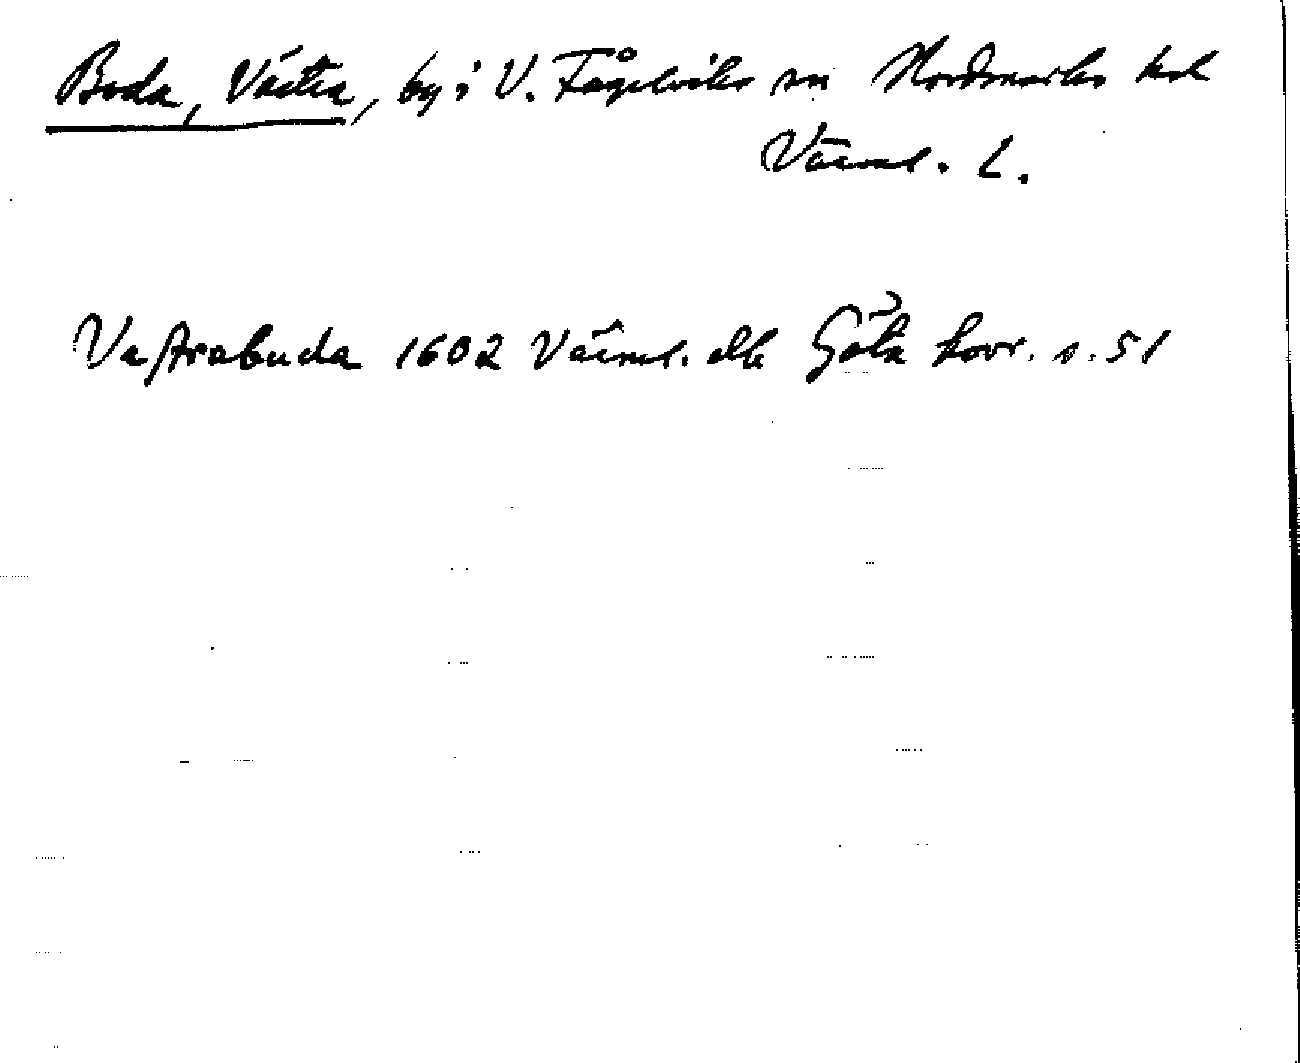 Boda, Västra, by i V. Fågelviks sn Nordmarks hd
Värml. L.
Vestrabuda 1602 Värml. dlb Göta hovr. s. 51